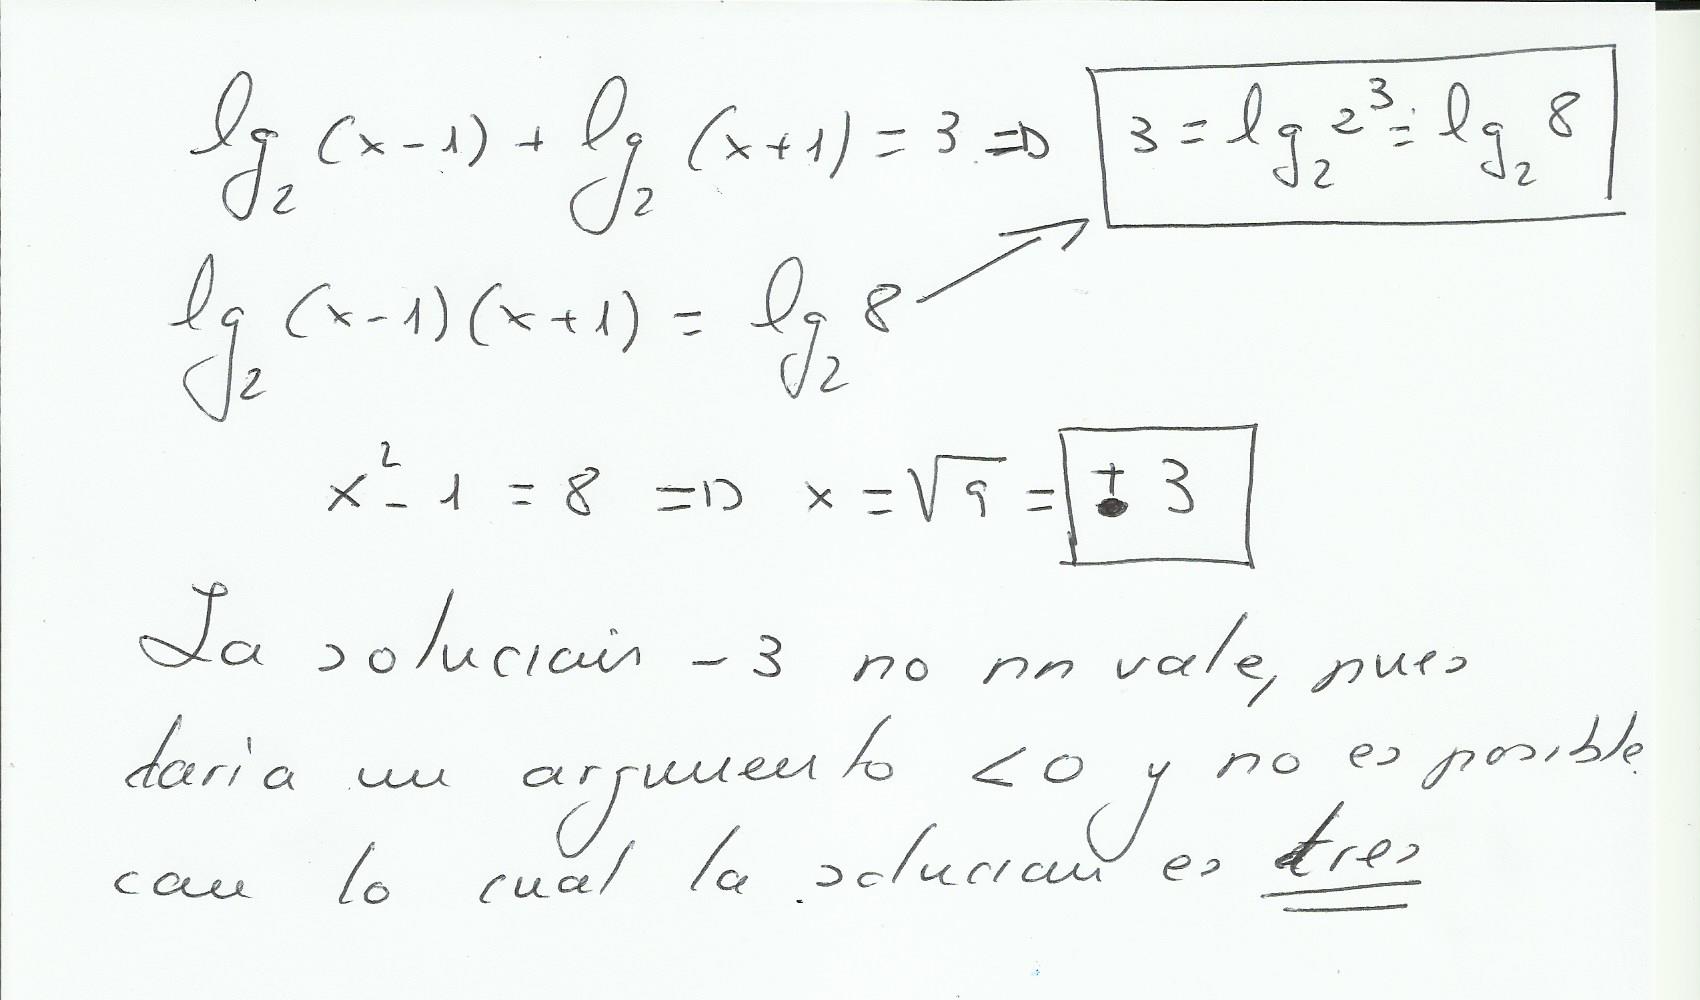 lg₂ (x-1) + lg₂ (x+1) = 3 => 3 = lg₂ 2³ = lg₂ 8
lg₂ (x-1)(x+1) = lg₂ 8
x² - 1 = 8 => x = √9 = ± 3
La solución -3 no vale, pues
daría un argumento <0 y no es posible
con lo cual la solución es tres